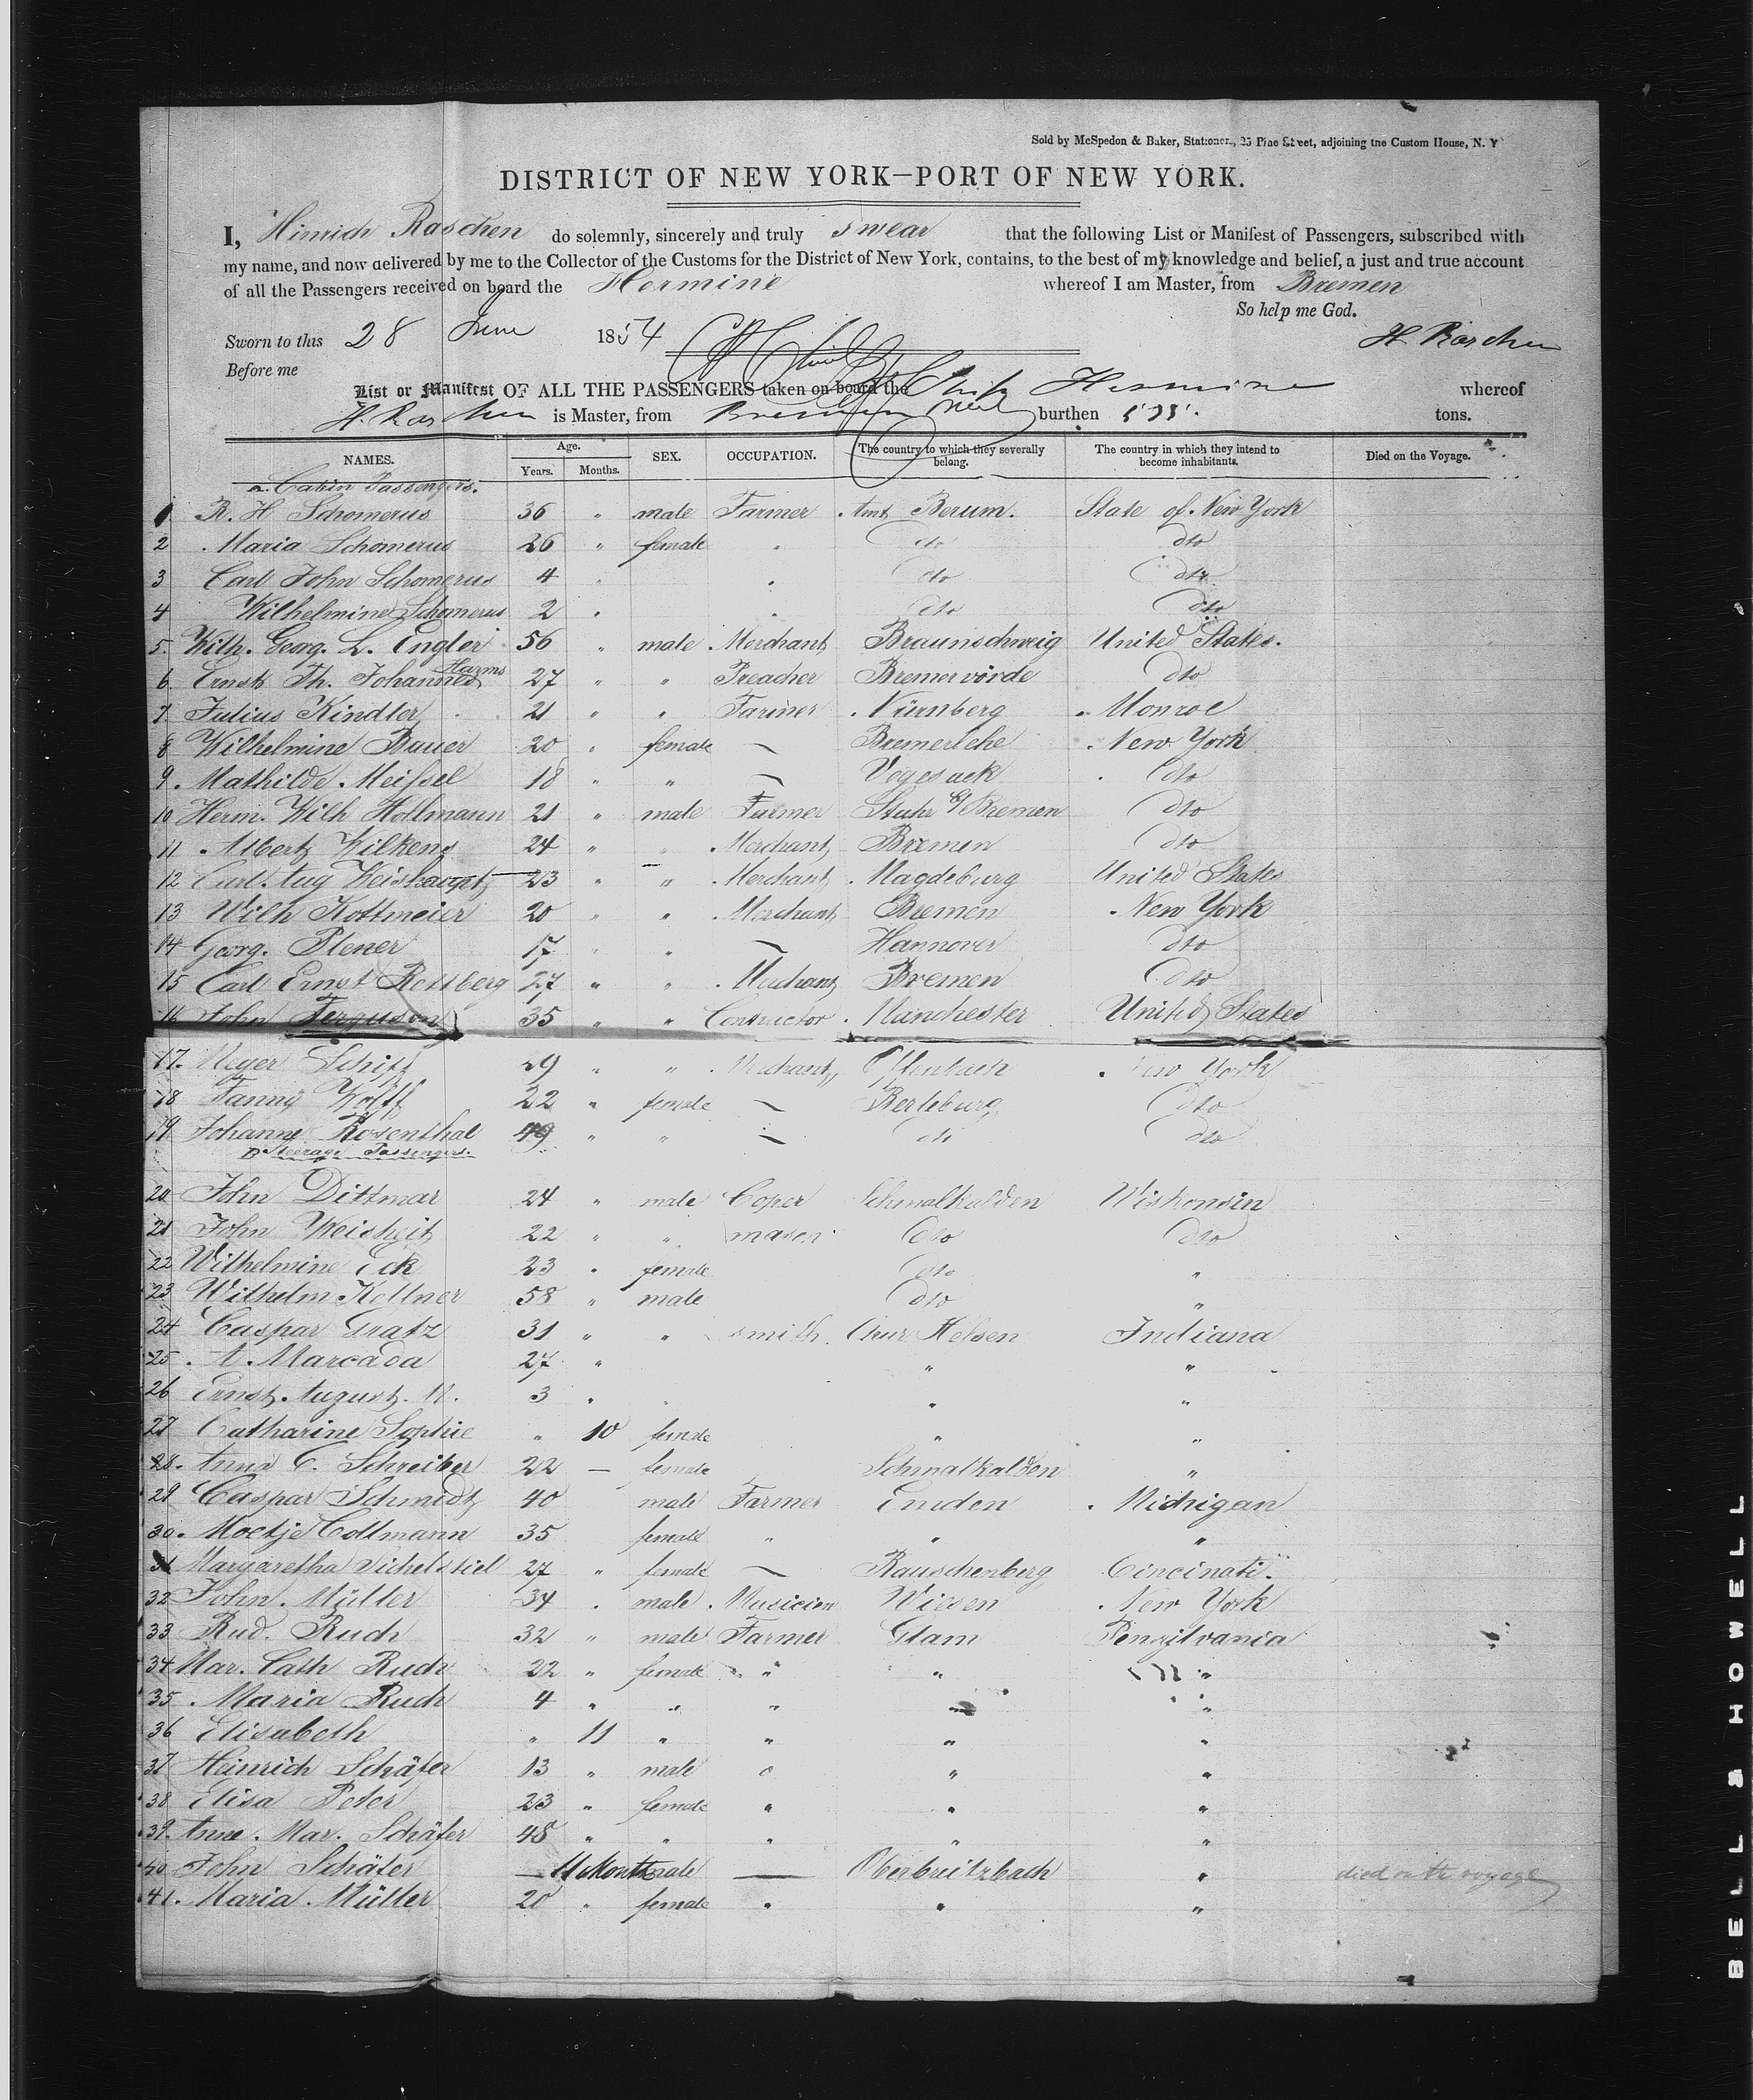 Sold by McSpedon & Baker, Stationers, 25 Pine Street, adjoining the Custom House, N. Y
DISTRICT OF NEW YORK—PORT OF NEW YORK.
I, Hinrich Raschen do solemnly, sincerely and truly swear that the following List or Manifest of Passengers, subscribed with
my name, and now delivered by me to the Collector of the Customs for the District of New York, contains, to the best of my knowledge and belief, a just and true account
of all the Passengers received on board the Hermine whereof I am Master, from Bremen
So help me God.
Sworn to this 28 June 1854 H. Raschen
Before me
List or Manifest OF ALL THE PASSENGERS taken on board the Ship Hermine whereof
H. Raschen is Master, from Bremen burthen tons.
NAMES. Age. Years. Months. SEX. OCCUPATION. The country to which they severally belong. The country in which they intend to become inhabitants. Died on the Voyage.
a. Cabin Passengers.
1 R. H Schomerus 36 " male Farmer Amt Berum. State of New York
2 Maria Schomerus 26 " female " dto dto
3 Carl John Schomerus 4 " " dto dto
4 Wilhelmine Schomerus 2 " " dto dto
5. Wilh. Georg. L. Engler 56 " male Merchant Braunschweig United States.
6. Ernst Th. Johannes Harms 27 " " Preacher Bremervörde dto
7 Julius Kindler 21 " " Farmer Nürnberg Monroe
8 Wilhelmine Bauer 20 " female — Bremerlehe New York
9. Mathilde Meissel 18 " " — Vegesack dto
10 Herm. Wilh Hollmann 21 " male Farmer Stuhr b/ Bremen dto
11 Albert Wilkens 24 " " Merchant Bremen dto
12 Carl Aug Weishaupt 23 " " Merchant Magdeburg United States
13 Wilh Kottmeier 20 " " Merchant Bremen New York
14 Georg. Plener 17 " " — Hannover dto
15 Carl Ernst Rettberg 27 " " Merchant Bremen dto
16 John Ferguson 35 " " Contructor Manchester United States
17. Meyer Schiff 29 " " Merchant Offenbach New York
18 Fanny Wolff 22 " female — Berleburg dto
19 Johanne Rosenthal 49 " " — dto dto
B Steerage Passengers.
20 John Dittmar 24 " male Coper Schmalkalden Wiskonsin
21 John Weisheit 22 " " mason dto dto
22 Wilhelmine Eck 23 " female dto "
23 Wilhelm Kellner 58 " male dto "
24 Caspar Gratz 31 " " smith Chur Hessen Indiana
25. A. Marcada 27 " " "
26 Ernst August. 3 " " " "
27 Catharine Sophie " 10 female " "
28. Anna C. Schreiber 22 — female Schmalkalden "
29 Caspar Schmidt 40 male Farmer Emden Michigan
30. Moetje Collmann 35 female " " "
31 Margaretha Sichelstiel 27 " female — Rauschenberg Cincinati.
32 John Müller 34 " male Musicien Wiesen New York
33 Rud. Ruch 32 " male Farmer Glam Pensilvania
34 Mar. Cath Ruch 22 " female " " "
35 Maria Ruch 4 " " " "
36 Elisabeth " 11 " " " "
37 Heinrich Schäfer 13 " male " " "
38 Elisa Peter 23 " female " " "
39. Anne Mar. Schäfer 48 " " " " "
40 John Schäfer — 11 Month male — Oberbreitzbach " died on the voyage
41. Maria Müller 20 " female " " "
BELL & HOWELL